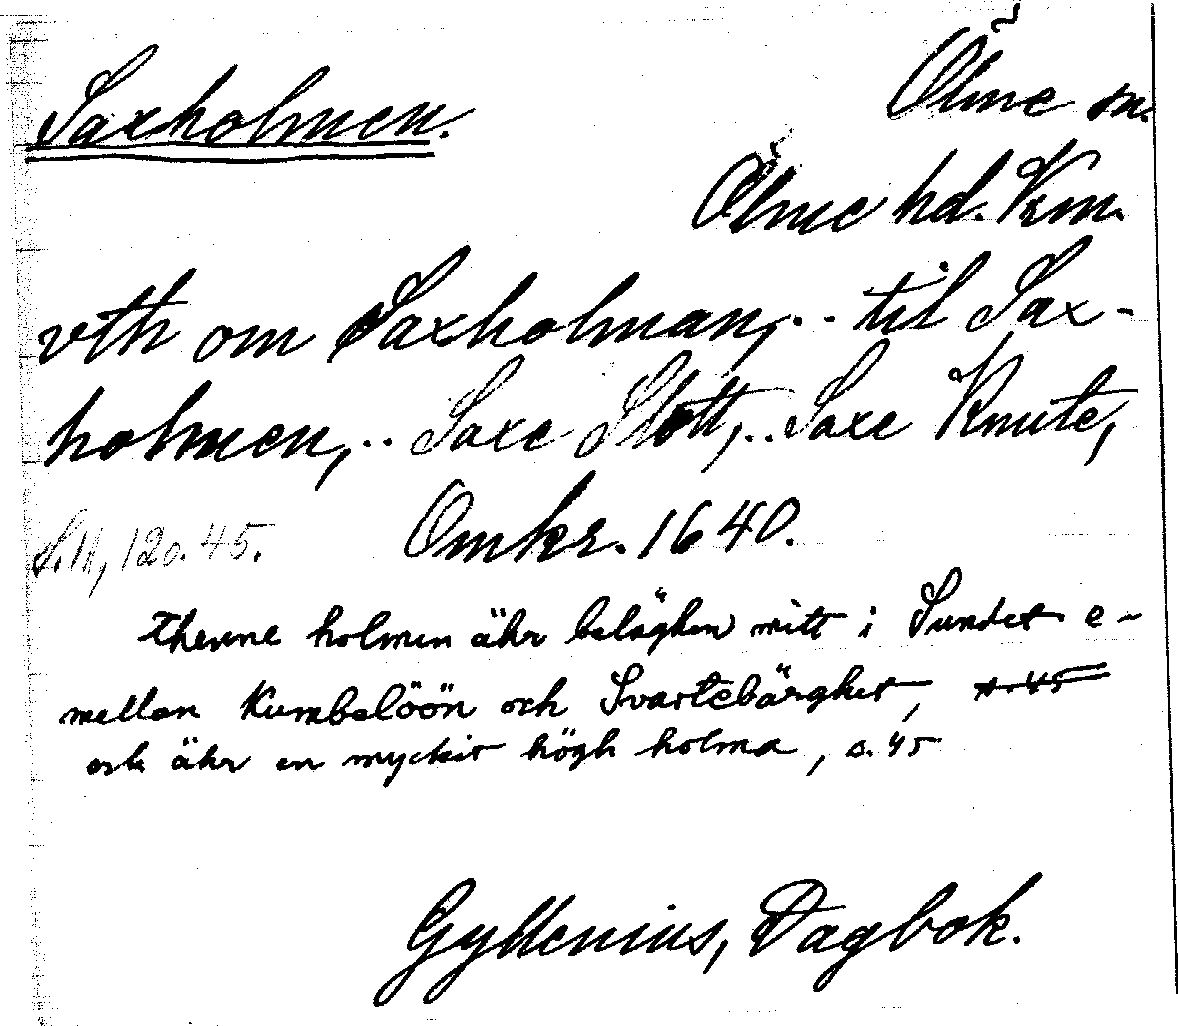 Saxholmen.
Ölme sn.
Ölme hd. Vrm.
vth om Saxholman,.. til Sax-
holmen,.. Saxe Slott,.. Saxe Knute,
S. 11, 120. 45. Omkr. 1640.
thenne holmen ähr beläghen mitt i Sundet e-
mellan Kumbelöön och Svartebärghet, s. 45
och ähr en myckit högh holma, s. 45
Gyllenius, Dagbok.